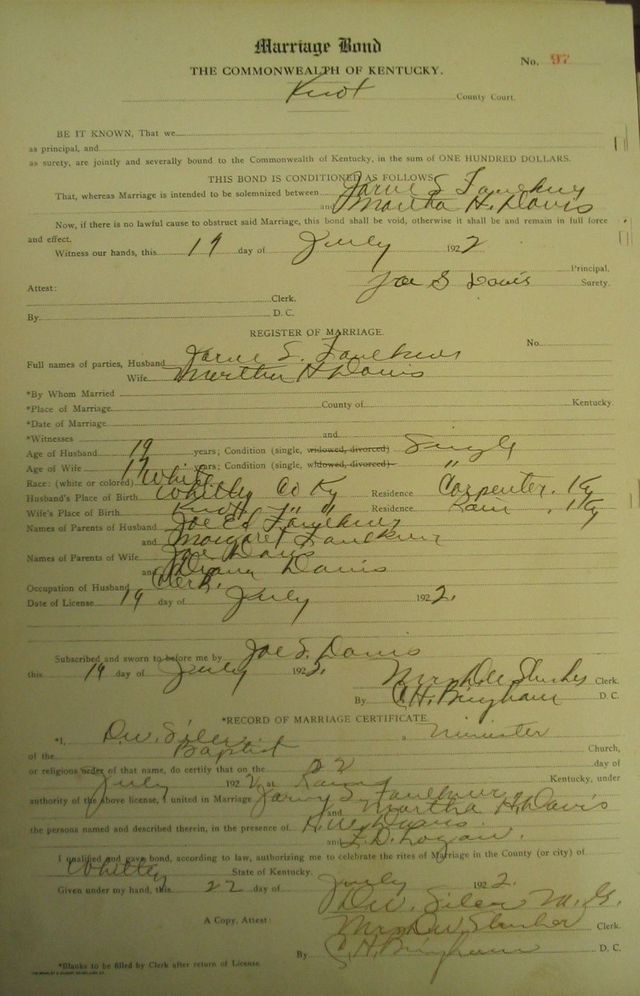 Marriage Bond
No. 97
THE COMMONWEALTH OF KENTUCKY.
Knox County Court.
BE IT KNOWN, That we
as principal, and
as surety, are jointly and severally bound to the Commonwealth of Kentucky, in the sum of ONE HUNDRED DOLLARS.
THIS BOND IS CONDITIONED AS FOLLOWS
That, whereas Marriage is intended to be solemnized between S Faulkner
and Martha H. Davis
Now, if there is no lawful cause to obstruct said Marriage, this bond shall be void, otherwise it shall be and remain in full force
and effect.
Witness our hands, this 19 day of July 1922
Principal,
Joe S Davis Surety.
Attest:
Clerk.
By D. C.
REGISTER OF MARRIAGE.
No.
Full names of parties, Husband S. Faulkner
Wife Martha H Davis
*By Whom Married
*Place of Marriage County of Kentucky.
*Date of Marriage
*Witnesses and
Age of Husband 19 years; Condition (single, widowed, divorced) Single
Age of Wife 17 years; Condition (single, widowed, divorced) "
Race: (white or colored) White
Husband's Place of Birth Whitley Co Ky Residence Carpenter. Ky
Wife's Place of Birth Knox " " Residence , Ky
Names of Parents of Husband Joe Faulkner
and Margaret Faulkner
Names of Parents of Wife Joe Davis
and Davis
Occupation of Husband Clerk.
Date of License 19 day of July 1922.
Subscribed and sworn to before me by Joe S. Davis
this 19 day of July 1922. Clerk.
By C. H. Bingham D. C.
*RECORD OF MARRIAGE CERTIFICATE.
*I, D. W. Siler a Minister
of the Baptist Church,
or religious order of that name, do certify that on the 22 day of
July 1922 at Kentucky, under
authority of the above license, I united in Marriage S. Faulkner
and Martha H. Davis
the persons named and described therein, in the presence of Davis.
and Logan.
I qualified and gave bond, according to law, authorizing me to celebrate the rites of Marriage in the County (or city) of
Whitley State of Kentucky.
Given under my hand, this 22 day of July 1922.
D. W. Siler M. G.
A Copy, Attest: Mrs D W Clerk.
By C. H. Bingham D. C.
*Blanks to be filled by Clerk after return of License.